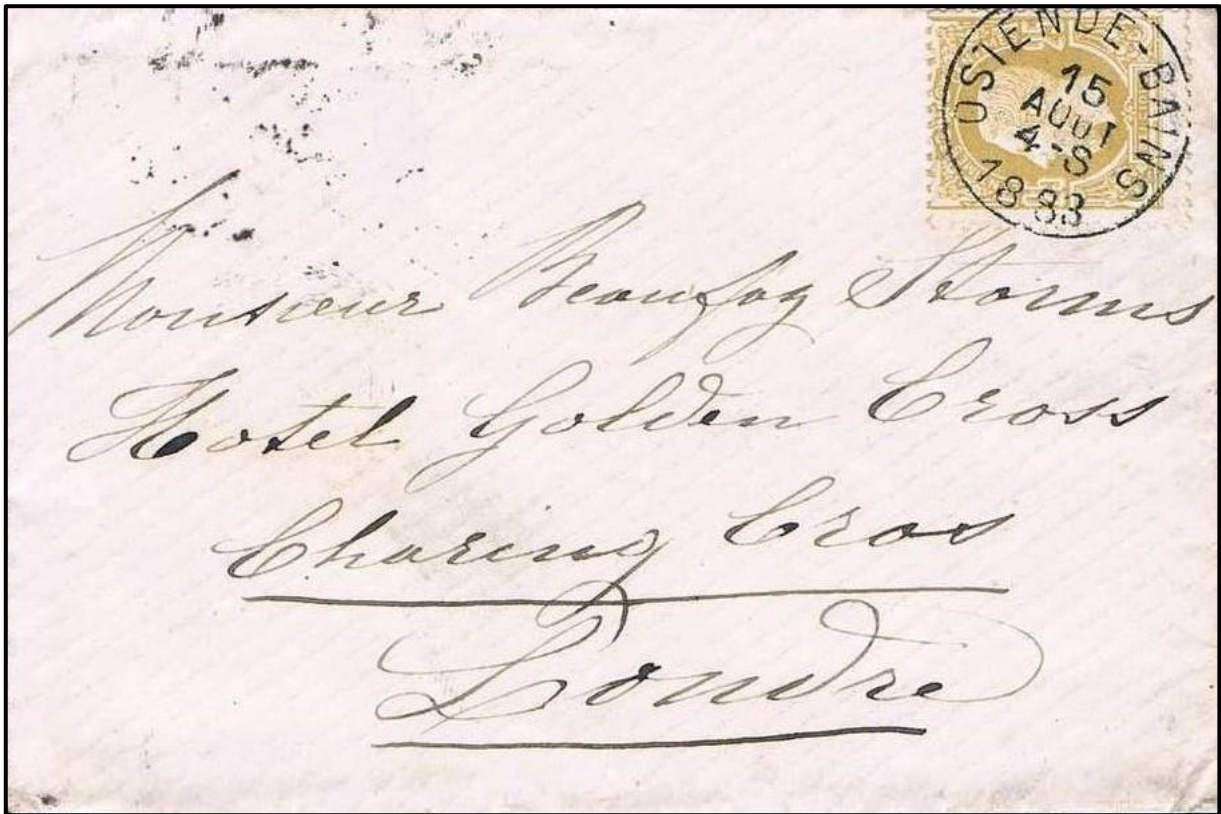 OSTENDE-BAINS
15
AOUT
4-S
1883
Monsieur Beaufay Storms
Hotel Golden Cross
Charing Cros
Londre